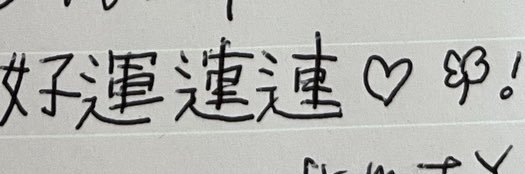 好運連連♡!